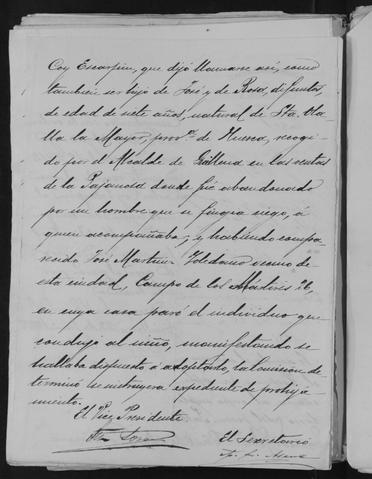 Coy Escarpin, que dijó llamarse así, como
tambien ser hijo de José y de Rosa, difuntos
de edad de siete años, natural de Sta. Ola
lla la Mayor, prov.ª de Huesca, recogi
do por el Alcalde de en las ventas
de la Pajanosa donde fué abandonado
por un hombre que se fingia ciego, á
quien acompañaba; y habiendo compa
recido José Martinez Toledano vecino de
esta ciudad, Campo de los Mártires
en cuya casa paró el individuo que
condujo al niño, manifestando se
hallaba dispuesto a adoptarlo, la Comision de
terminó se instruyera expediente de prohija
miento.
El Vice Presidente
El Secretario